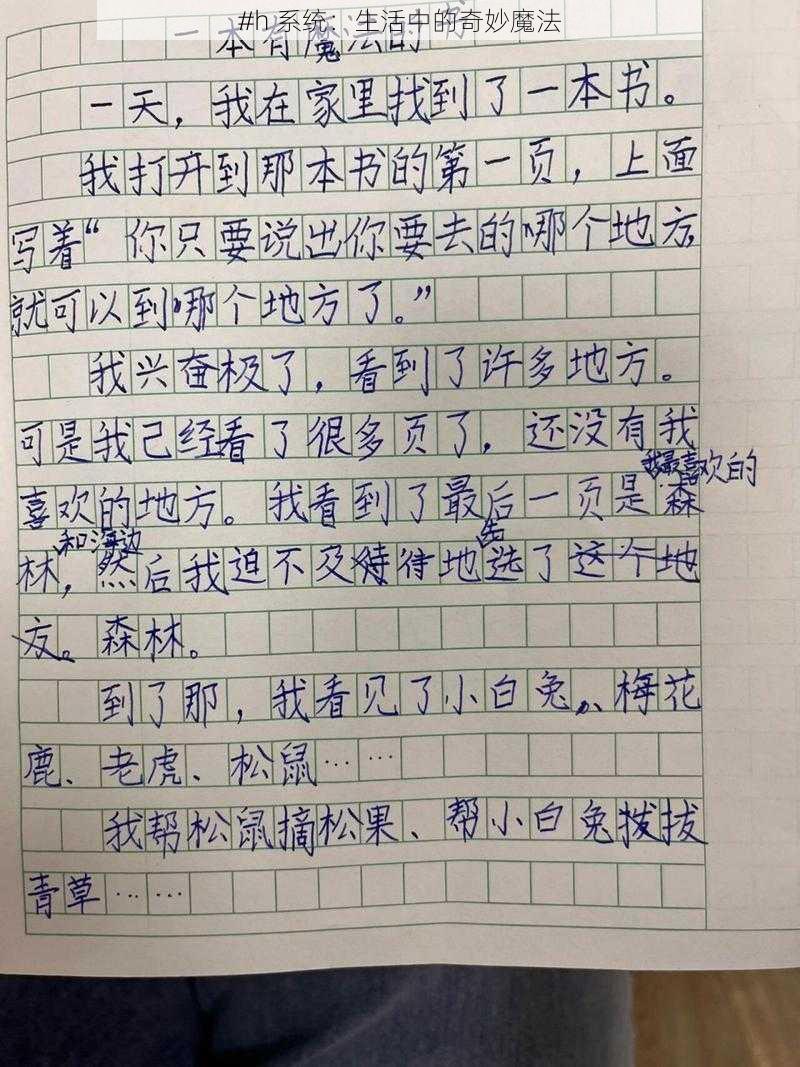 #h 系统：生活中的奇妙魔法
一本有魔法的书
一天，我在家里找到了一本书。
我打开到那本书的第一页，上面
写着“你只要说出你要去的哪个地方，
就可以到哪个地方了。”
我兴奋极了，看到了许多地方。
可是我已经看了很多页了，还没有我
喜欢的地方。我看到了最后一页是我最喜欢的森
林和海边，然后我迫不及待待地选了这个地
方。森林。
到了那，我看见了小白兔、梅花
鹿、老虎、松鼠……
我帮松鼠摘松果、帮小白兔拨拔
青草……